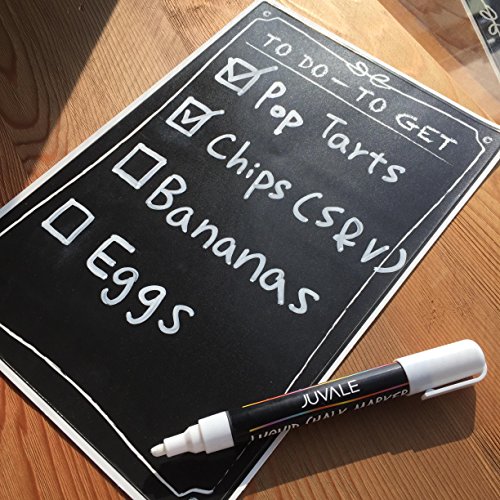 TO DO - TO GET
Pop Tarts
Chips (S&V)
Bananas
Eggs
JUVALE
LIQUID CHALK MARKER